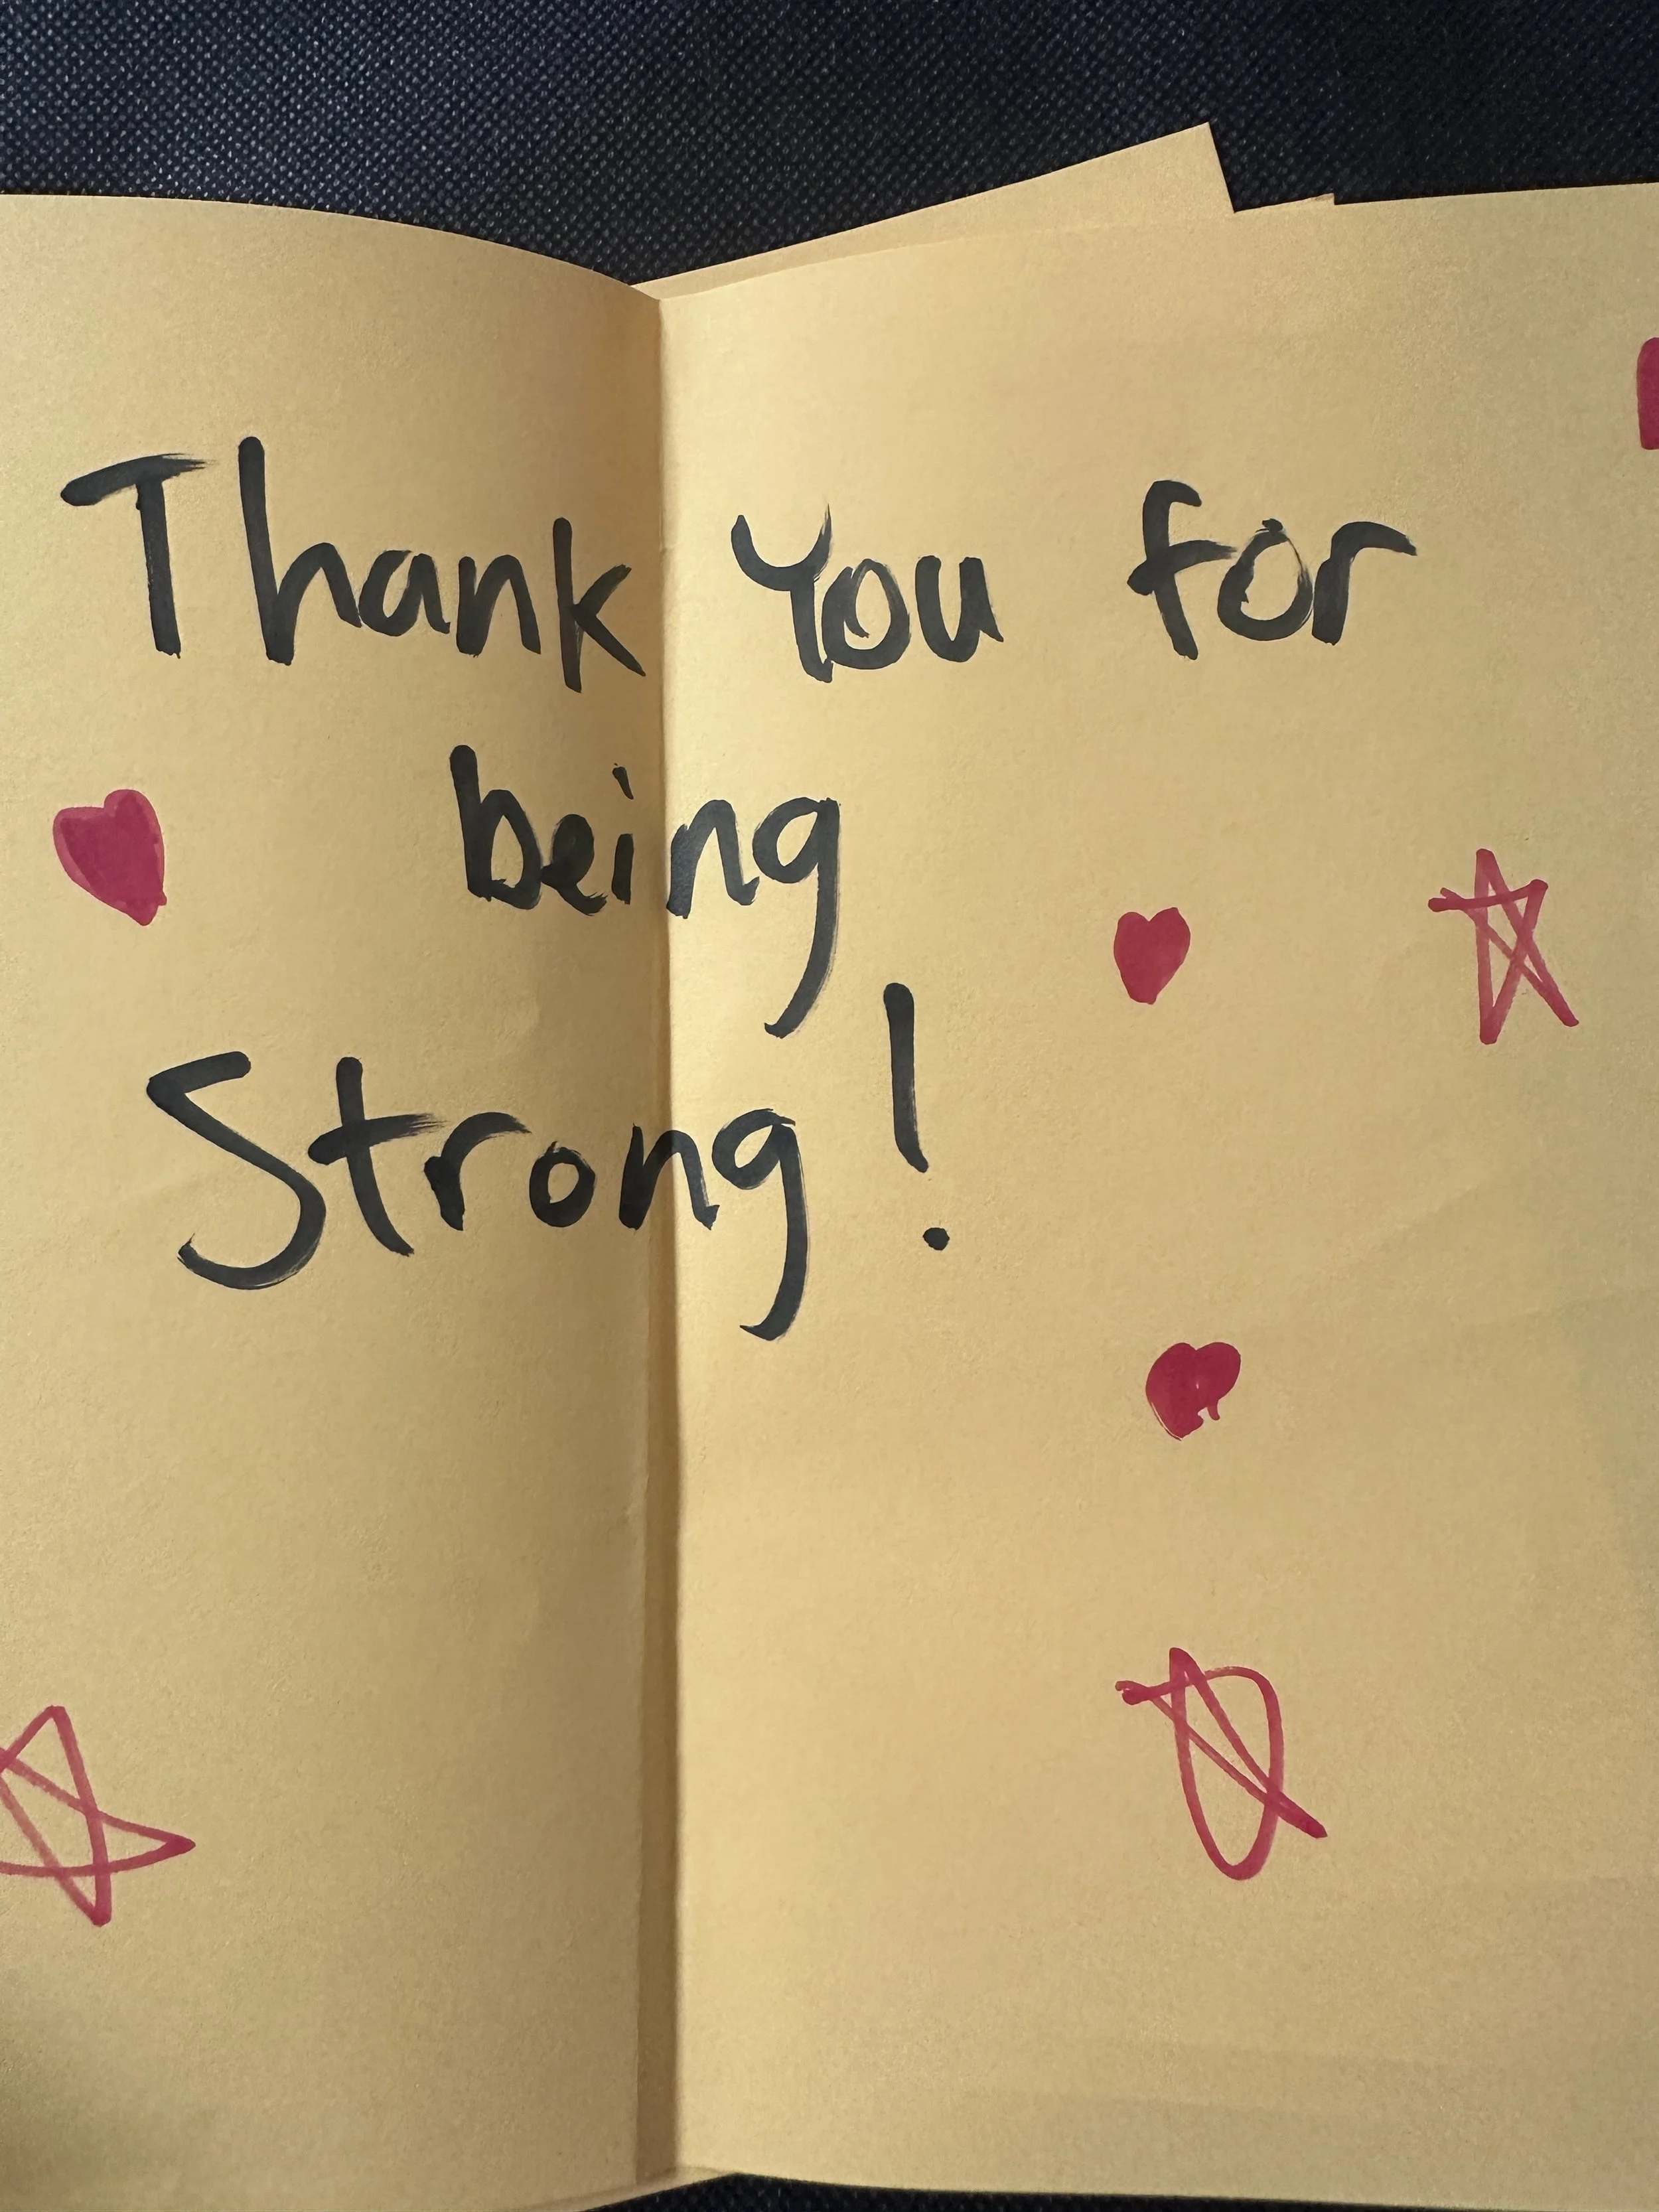 Thank You for
being
Strong!